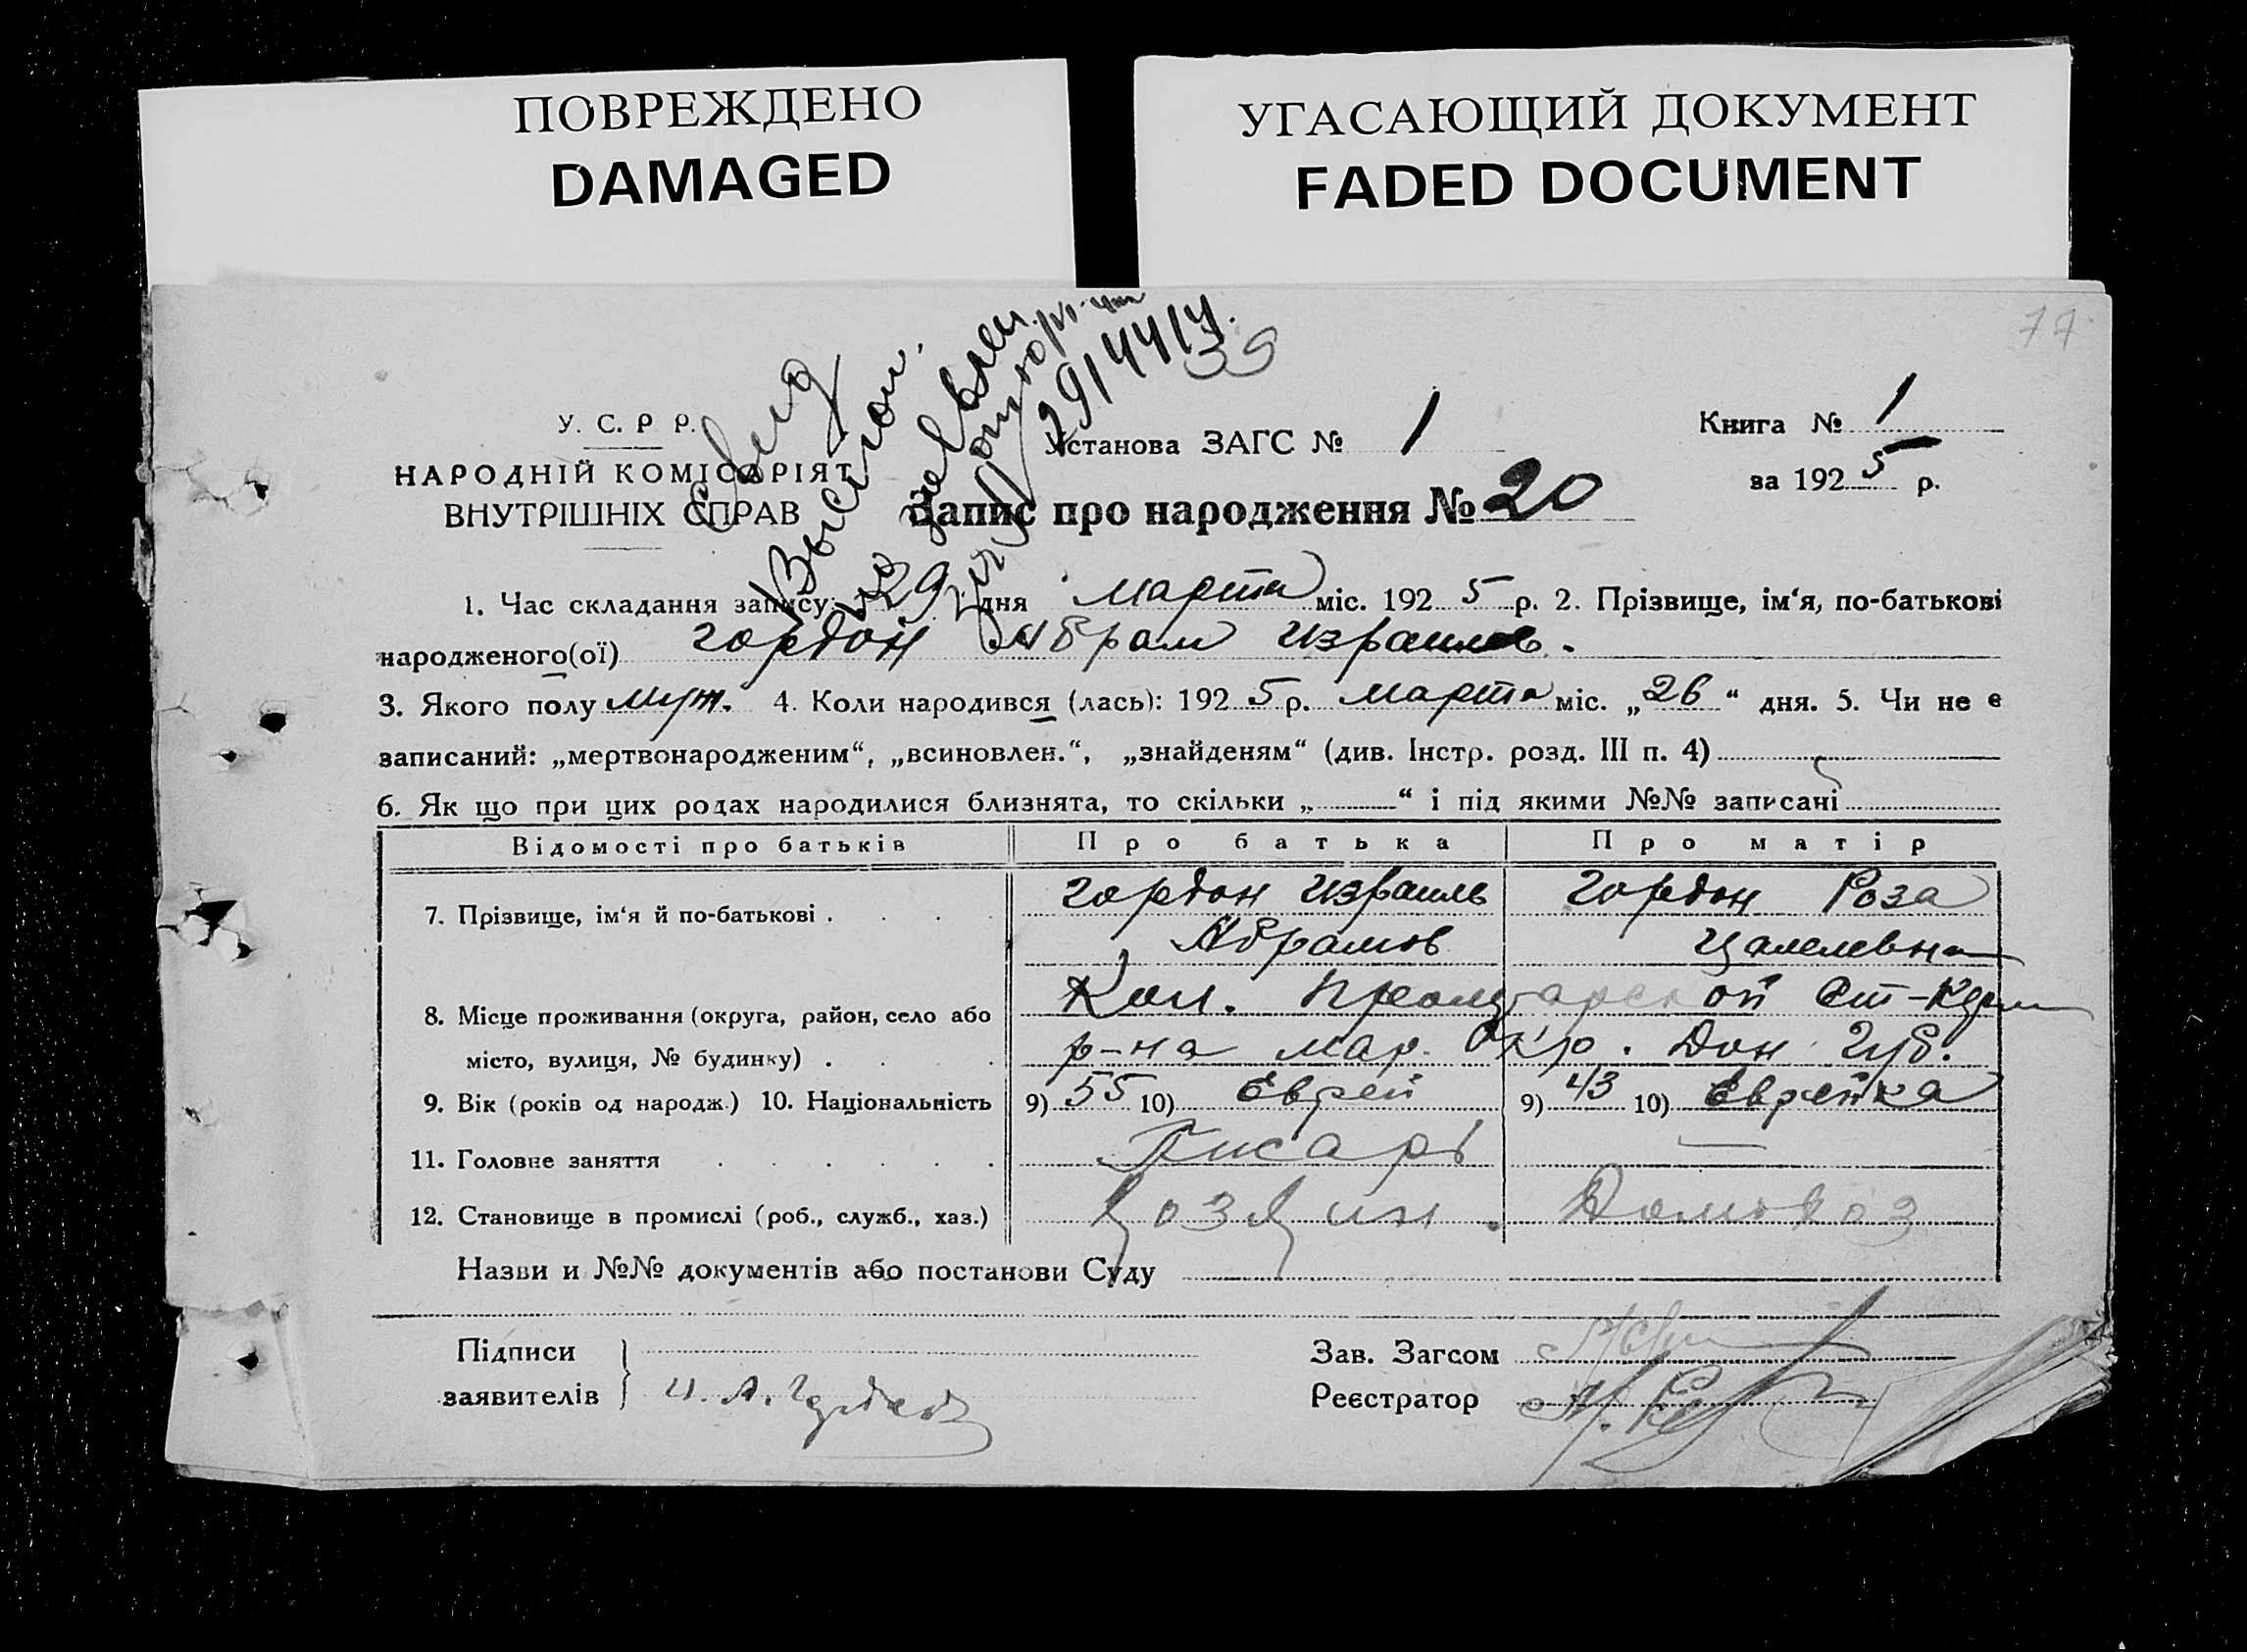 ПОВРЕЖДЕНО
DAMAGED
УГАСАЮЩИЙ ДОКУМЕНТ
FADED DOCUMENT
77
39
У. С. Р Р.
НАРОДНІЙ КОМІСАРІЯТ
ВНУТРІШНІХ СПРАВ
Установа ЗАГС № 1
Книга № 1
за 1925 р.
Запис про народження № 20
1. Час складання запису: 29 дня марта міс. 1925 р. 2. Прізвище, ім‘я, по-батькові
народженого(ої) Гордон Абрам Израилев.
3. Якого полу муж. 4. Коли народився (лась): 1925 р. марта міс. „26“ дня. 5. Чи не є
записаний: „мертвонародженим“, „всиновлен.“, „знайденям“ (див. Інстр. розд. III п. 4)
6. Як що при цих родах народилися близнята, то скільки „ “ і під якими №№ записані
Відомості про батьків Про батька Про матір
7. Прізвище, ім‘я й по-батькові . Гордон Израиль Гордон Роза
Абрамов
8. Місце проживання (округа, район, село або Кол. Ст-Керм
місто, вулиця, № будинку) . р-на Мар. Окр. Дон Губ.
9. Вік (років од народж.) 10. Національність 9) 55 10) Еврей 9) 43 10) Еврейка
11. Головне заняття Писарь —
12. Становище в промислі (роб., служб., хаз.) Хозяин. Домохоз
Назви и №№ документів або постанови Суду
Підписи
заявителів
И. А. Гордон
Зав. Загсом
Реєстратор